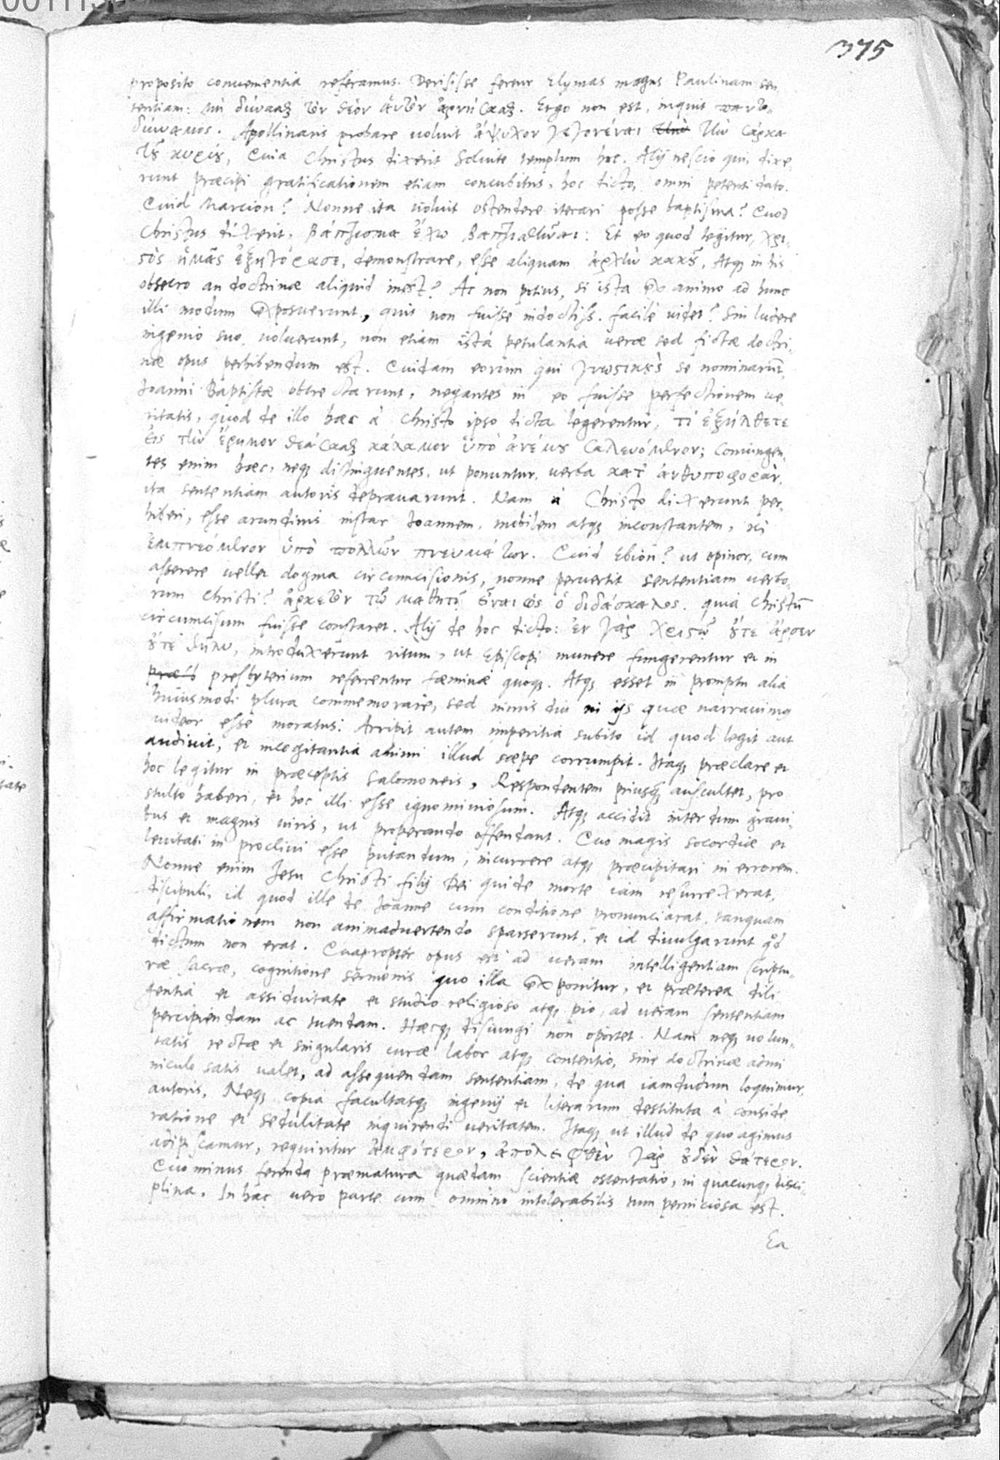 375
proposito conuenientia referamus. Derisisse fertur Elymas magus Paulinam sen
tentiam: μὴ δύναϑ τὸν θεὸν αὐτὸν ἀρνήσαϑ. Ergo non est, inquit παντο
δύναμος. Apollinaris probare uoluit ἄψυχον γεγονέναι τὴν σάρκα
τοῦ κυρίου, Quia Christus dixerit Soluite templum hoc. Alij nescio qui, dixe
runt præcipi gratificationem etiam concubitus, hoc dicto, omni petenti dato.
Quid Marcion? Nonne ita uoluit ostendere iterari posse baptisma? Quod
Christus dixerit, βάπτισμα ἔχω βαπτισθῆναι: Et eo quod legitur, χρι
στὸς ἡμᾶς ἐξηγόρασε, demonstrare, esse aliquam ἀρχὴν κακοῦ, Atque in his
obsecro an doctrinæ aliquid inest? Ac non potius, si ista ex animo ad hunc
illi modum exposuerunt, quis non fuisse indoctiss. facile uidet? Sin ludere
ingenio suo uoluerunt, non etiam ista petulantia ueræ sed fictæ doctri,
næ opus perhibendum est. Quidam eorum qui γνωστικοὺς se nominarūt,
Joanni Baptistæ obtrectarunt, negantes in eo fuisse perfectionem ue
ritatis, quod de illo hæc à Christo ipso dicta legerentur, τί ἐξήλθετε
εἰς τὴν ἔρημον θεάσαϑ κάλαμον ὑπὸ ἀνέμου σαλευόμενον; Coniungen,
tes enim hæc, neque distinguentes, ut ponuntur, uerba κατ' ἀνθυποφοράν,
ita sententiam autoris deprauarunt. Nam à Christo dixerunt per
hiberi, esse arundinis instar Joannem, mobilem atque inconstantem,
ἐμπνεόμενον ὑπὸ πολλῶν πνευμάτων. Quid Ebion? ut opinor, cum
asserere uellet dogma circumcisionis, nonne peruertit sententiam uerbo,
rum Christi? ἀρκετὸν τῷ μαθητῇ εἶναι ὡς ὁ διδάσκαλος. quia Christū
circumcisum fuisse constaret. Alij de hoc dicto: ἐν γὰρ χριστῷ οὔτε ἄρσεν
οὔτε θῆλυ, introduxerunt ritum, ut Episcopi munere fungerentur et in
presbyterium referrentur fœminæ quoque. Atque esset in promptu alia
huiusmodi plura commemorare, sed nimis diu in ijs quæ narrauimus
uideor esse moratus. Arripit autem imperitia subito id quod legit aut
audiuit, et incogitantia animi illud sæpe corrumpit. Itaque præclare et
hoc legitur in præceptis Salomoneis, Respondentem priusquam auscultet, pro
stulto haberi, et hoc illi esse ignominiosum. Atque accidit interdum graui,
bus et magnis uiris, ut properando offendant. Quo magis socordiæ et
leuitati in procliui esse putandum, incurrere atque præcipitari in errorem.
Nonne enim Jesu Christi filij Dei qui de morte iam resurrexerat,
discipuli, id quod ille de Joanne cum conditione pronunciarat, tanquam
affirmationem non animaduertendo sparserunt, et id diuulgarunt quod
dictum non erat. Quapropter opus est ad ueram intelligentiam scriptu,
ræ sacræ, cognitione sermonis quo illa exponitur, et præterea dili
gentia et assiduitate et studio religioso atque pio, ad ueram sententiam
percipiendam ac tuendam. Hæcque disiungi non oportet. Nam neque uolun,
tatis rectæ et singularis curæ labor atque contentio, sine doctrinæ admi
niculo satis ualet, ad assequendam sententiam, de qua iamdudum loquimur,
autoris, Neque copia facultasque ingenij et literarum destituta à conside
ratione et sedulitate inquirendi ueritatem. Itaque ut illud de quo agimus
adipiscamur, requiritur ἀμφότερον, ἀπολειφθὲν γὰρ οὐδὲν θάτερον.
Quo minus ferenda præmatura quædam scientiæ ostentatio, in quacunque disci
plina. In hac uero parte cum omnino intolerabilis tum perniciosa est.
Ea